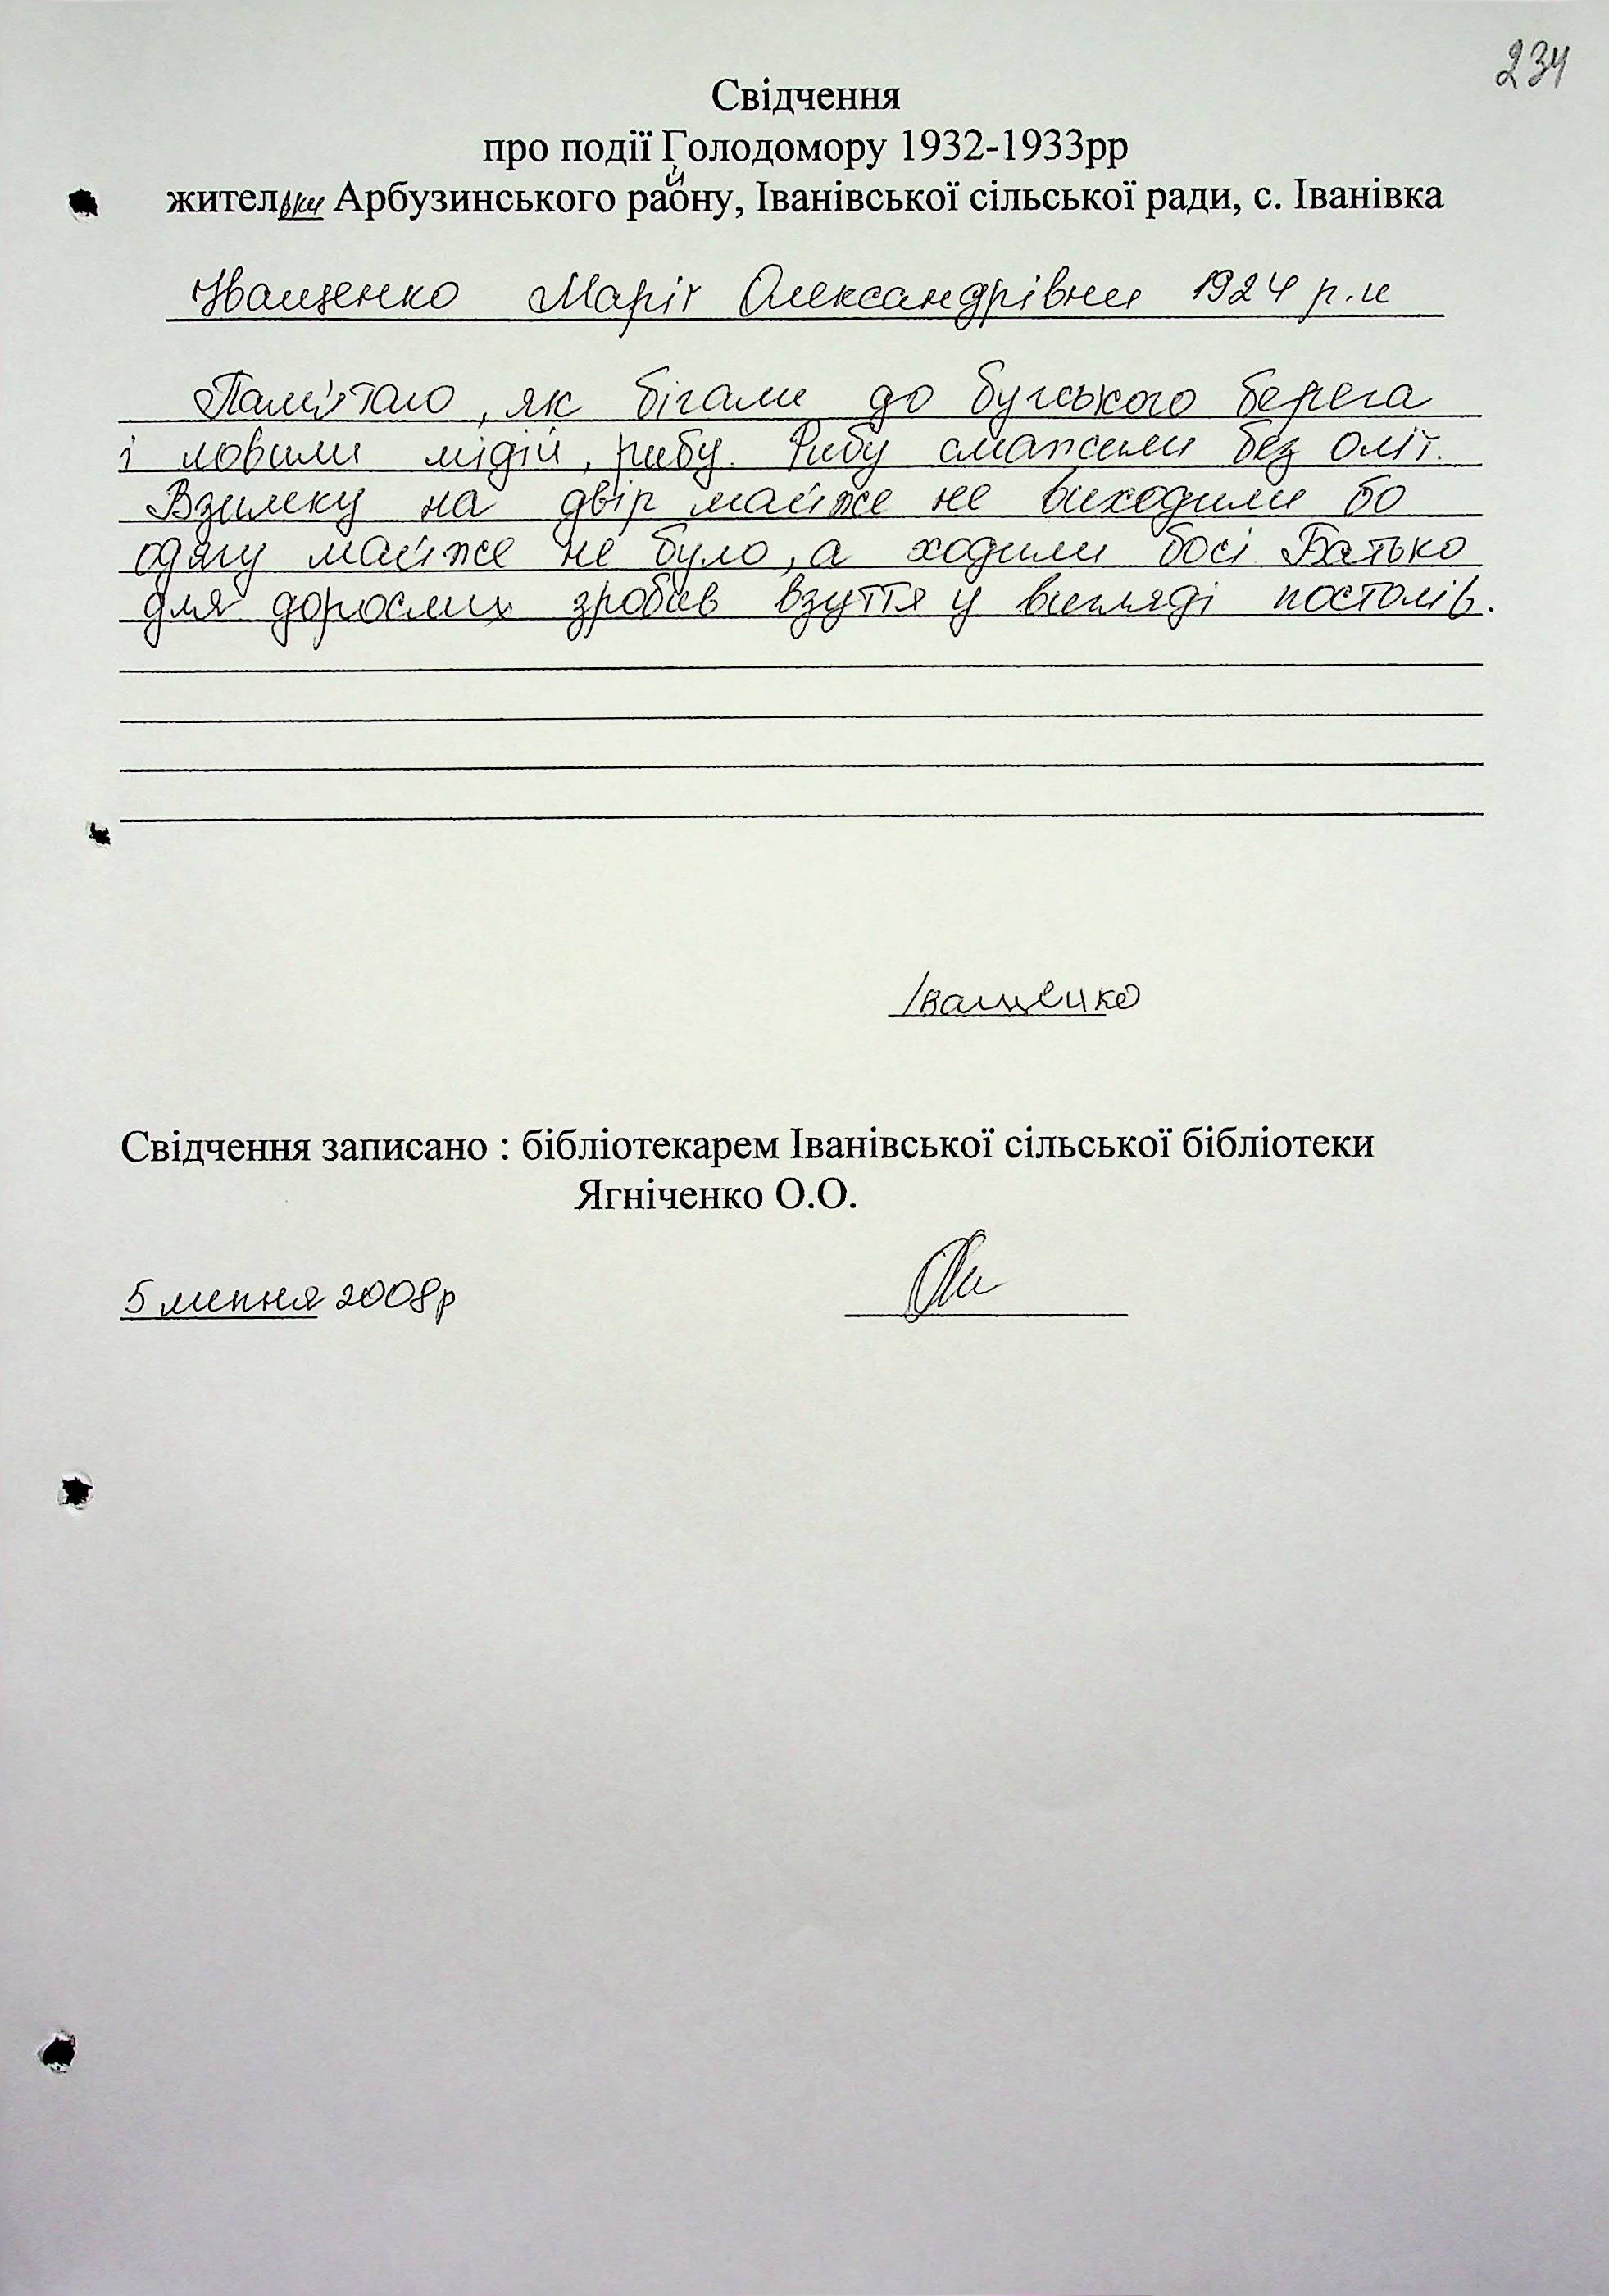 234
Свідчення
про події Голодомору 1932-1933рр
жительки Арбузинського району, Іванівської сільської ради, с. Іванівка
Іващенко Марії Олександрівни 1924 р.н
Пам'ятаю, як бігали до бугського берега
і ловили мідій, рибу. Рибу смажили без олії.
Взимку на двір майже не виходили бо
одягу майже не було, а ходили босі. Батько
для дорослих зробив взуття у вигляді постолів.
Іващенко
Свідчення записано : бібліотекарем Іванівської сільської бібліотеки
Ягніченко О.О.
5 липня 2008р